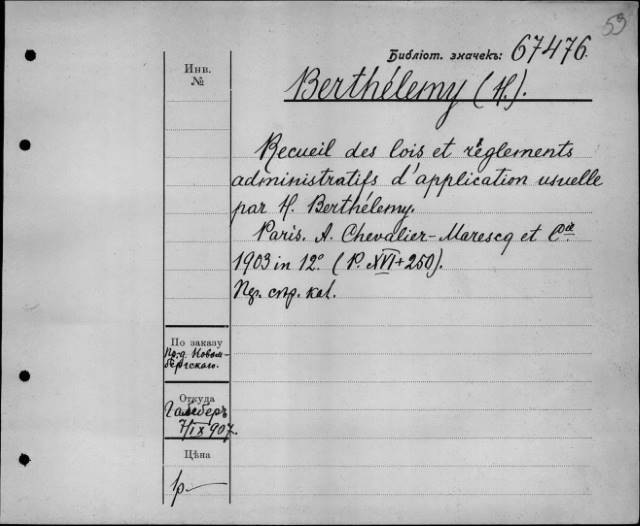 59
Библіот. значекъ: 67476.
Инв.
№
Berthélemy (H.).
Recueil des lois et règlements
administratifs d'application usuelle
par H. Berthélemy.
Paris. A. Chevalier-Marescq et Cie
1903 in 12º. (P. XVI+250).
стр. kal.
По заказу
Пр-д. Новом-
бергскаго.
Откуда
7/IX 907.
Цѣна
1р—